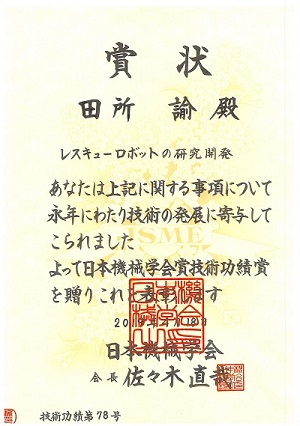 賞状
田所 諭 殿
レスキューロボットの研究開発
あなたは上記に関する事項について
永年にわたり技術の発展に寄与して
こられました
よって日本機械学会賞技術功績賞
を贈りこれを表彰します
日本機械学会
会長 佐々木直哉
技術功績第78号
JSME